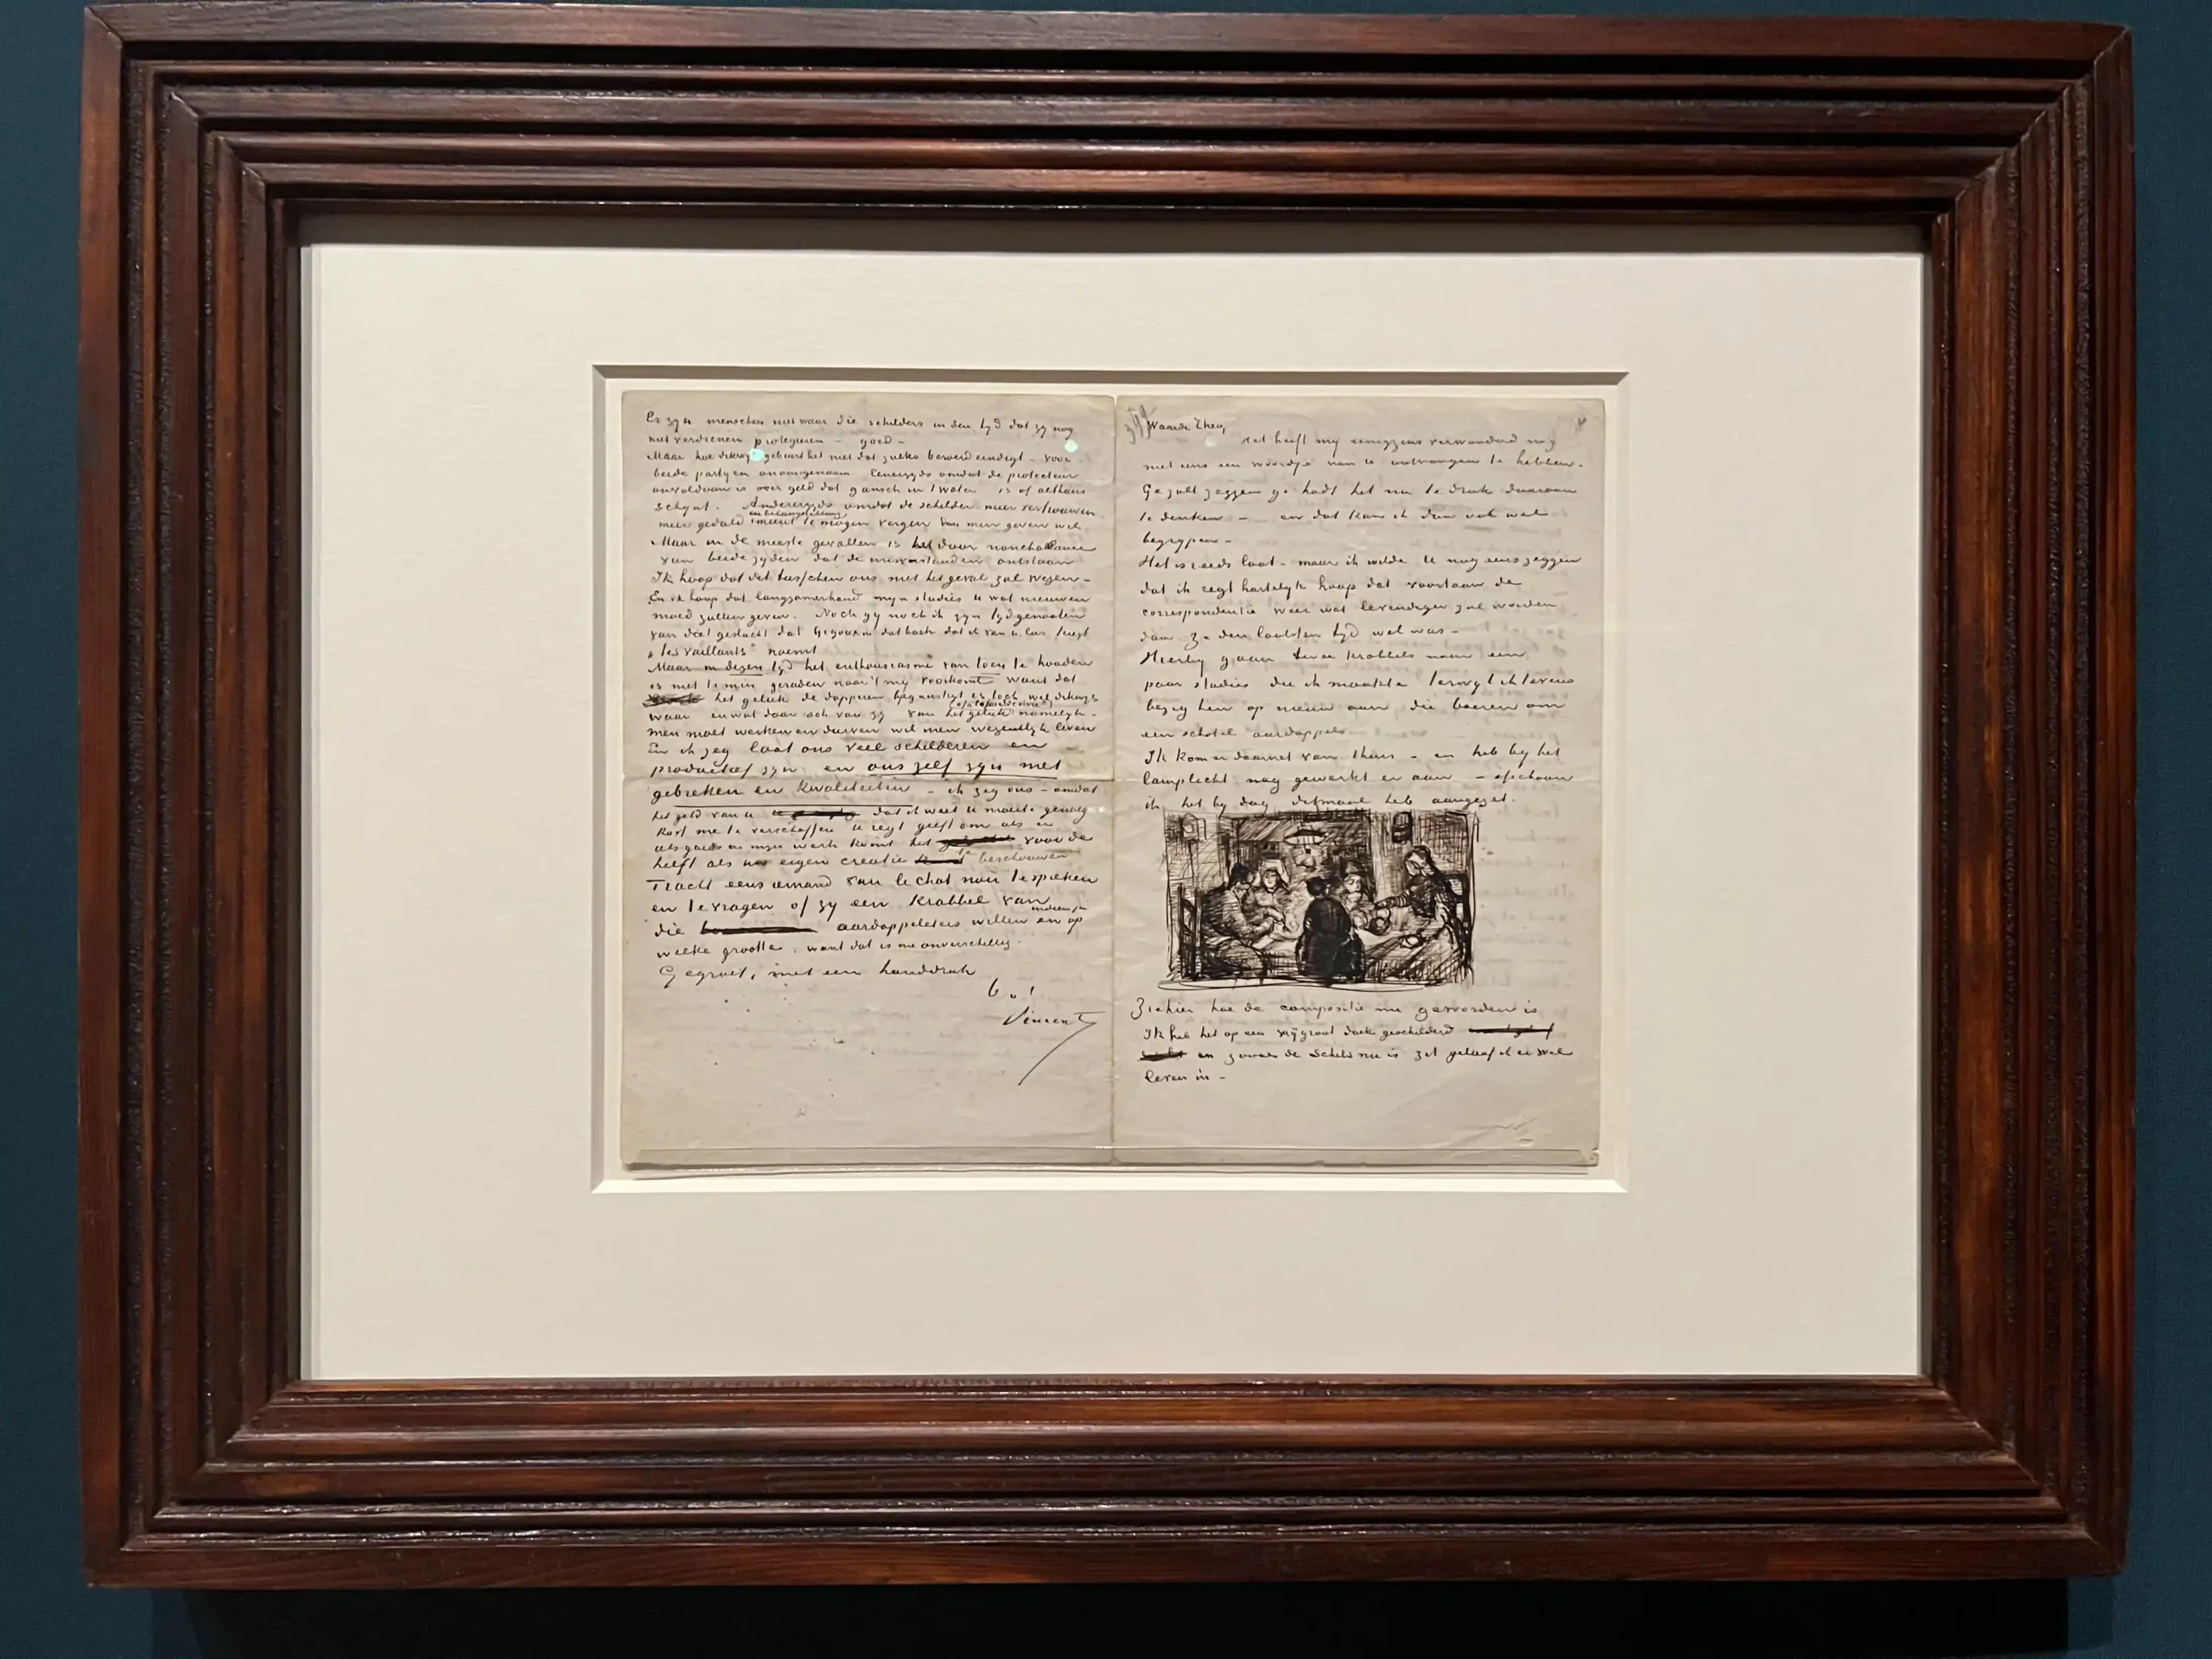 Er zyn menschen niet waar die schilders in den tyd dat zy nog
niet verdienen protegeren – goed –
Maar hoe dikwyls gebeurt het niet dat zulks beroerd eindigt – voor
beide partyen onaangenaam. Eenerzyds omdat de protecteur
onvoldaan is over geld dat gansch in 't water is of althans
schynt. Anderzyds omdat de schilder meer vertrouwen
en belangstelling
meer geduld meent te mogen vergen dan men geven wil
Maar in de meeste gevallen is het door nonchalance
van beide zyden dat de misverstanden ontstaan
Ik hoop dat dit tusschen ons niet het geval zal wezen –
En ik hoop dat langzamerhand myn studies u wat nieuwen
moed zullen geven. Noch gy noch ik zyn tydgenooten
van dat geslacht dat Gigoux in dat boek dat ik van u las
„les vaillants” noemt
Maar in dezen tyd het enthousiasme van toen te houden
is niet te min geraden naar 't my voorkomt want dat
het geluk de dapperen begunstigt is toch wel dikwyls
waar en wat daar ook van zy van het geluk (of la joie de vivre) namelyk –
men moet werken en durven wil men wezentlyk leven
En ik zeg laat ons veel schilderen en
productief zyn en ons zelf zyn met
gebreken en kwaliteiten – ik zeg ons – omdat
het geld van u dat ik weet u moeite genoeg
kost me te verschaffen u regt geeft om als er
iets goeds in myn werk komt het voor de
helft als uw eigen creatie te beschouwen
Tracht eens iemand van le chat noir te spreken
en te vragen of zy een krabbel van
die aardappeleters willen en indien ja op
welke grootte. want dat is me onverschillig.
Gegroet, met een handdruk
t. à t.
Vincent
Waarde Theo,
Het heeft my eenigzins verwonderd nog
niet eens een woordje van u ontvangen te hebben.
Ge zult zeggen ge hadt het nu te druk daaraan
te denken – en dat kan ik dan ook wel
begrypen –
Het is reeds laat – maar ik wilde U nog eens zeggen
dat ik regt hartelyk hoop dat voortaan de
correspondentie weer wat levendiger zal worden
dan ze den laatsten tyd wel was –
Hierby gaan twee krabbels naar een
paar studies die ik maakte terwyl ik tevens
bezig ben op nieuw aan die boeren om
een schotel aardappels
Ik kom er daarnet van thuis – en heb by het
lamplicht nog gewerkt er aan – ofschoon
ik het by dag ditmaal heb aangezet.
Ziehier hoe de compositie nu geworden is
Ik heb het op een vrij groot doek geschilderd
en zooals de schets nu is zit geloof ik er wel
leven in –